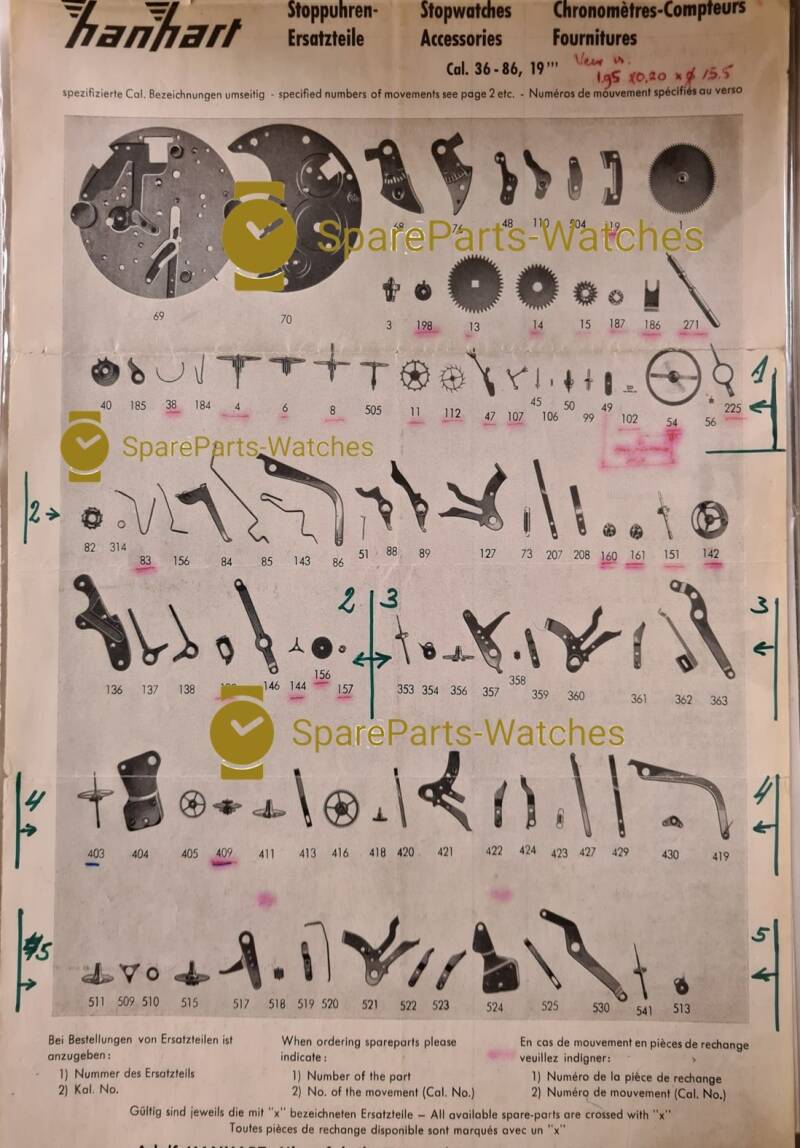 hanhart
Stoppuhren- Stopwatches Chronomètres-Compteurs
Ersatzteile Accessories Fournitures
Cal. 36-86, 19‴
1,95 x0,20 x ϕ 15.5
spezifizierte Cal. Bezeichnungen umseitig - specified numbers of movements see page 2 etc. - Numéros de mouvement spécifiés au verso
68 76 48 110 504 19 1
SpareParts-Watches
69 70 3 198 13 14 15 187 186 271
40 185 38 184 4 6 8 505 11 112 47 107 45 106 50 99 49 102 54 56 225
1
SpareParts-Watches
2
82 314 83 156 84 85 143 86 51 88 89 127 73 207 208 160 161 151 142
2 3 3
136 137 138 146 144 156 157 353 354 356 357 358 359 360 361 362 363
SpareParts-Watches
4 4
403 404 405 409 411 413 416 418 420 421 422 424 423 427 429 430 419
5 5
511 509 510 515 517 518 519 520 521 522 523 524 525 530 541 513
Bei Bestellungen von Ersatzteilen ist When ordering spareparts please En cas de mouvement en pièces de rechange
anzugeben: indicate: veuillez indigner:
1) Nummer des Ersatzteils 1) Number of the part 1) Numéro de la pièce de rechange
2) Kal. No. 2) No. of the movement (Cal. No.) 2) Numéro de mouvement (Cal. No.)
Gültig sind jeweils die mit "x" bezeichneten Ersatzteile – All available spare-parts are crossed with "x"
Toutes pièces de rechange disponible sont marqués avec un "x"